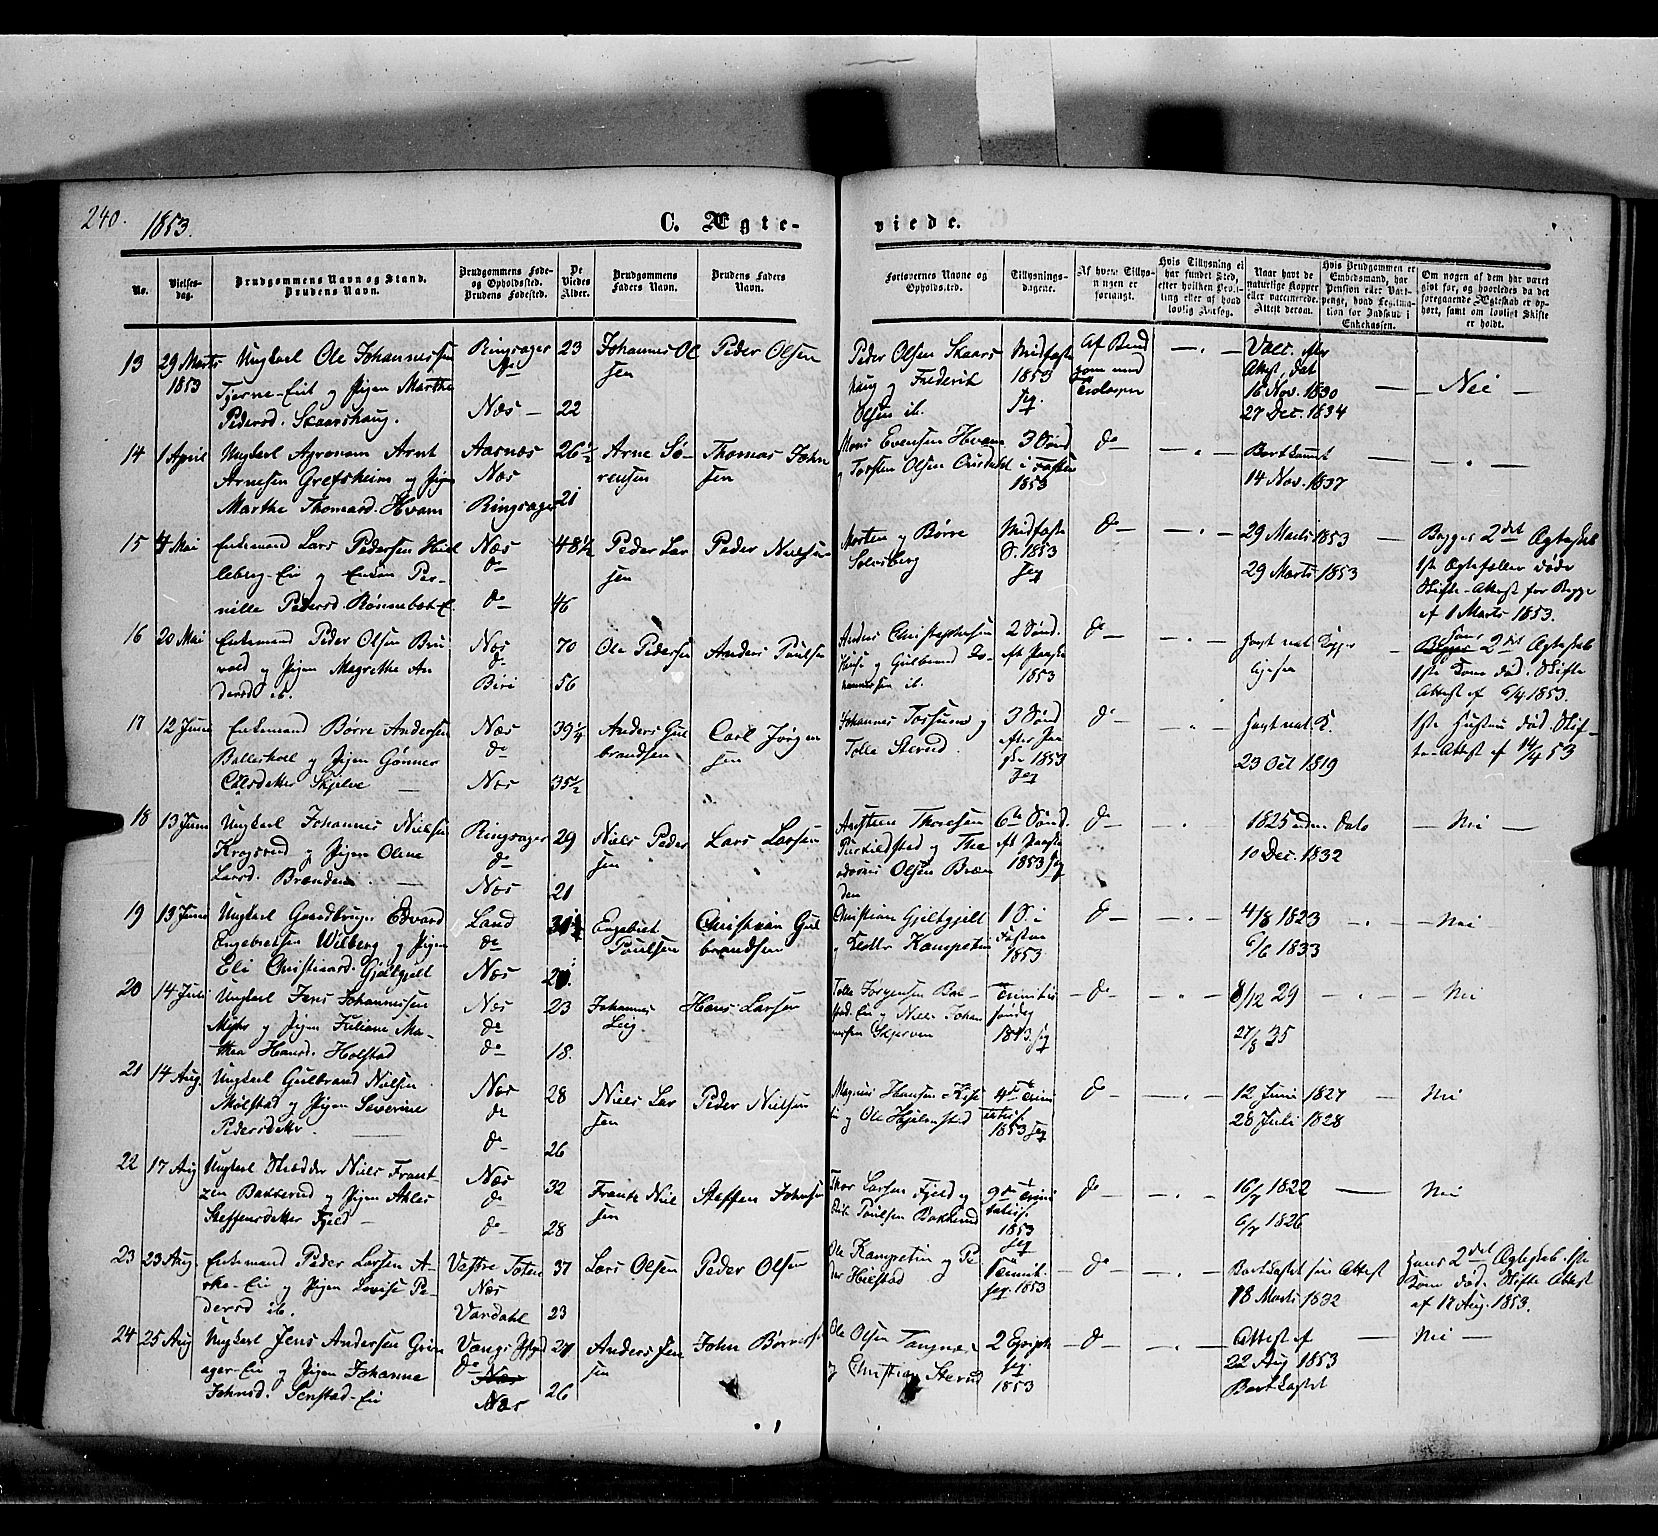 240. 1853.
C. Ægte-
viede.
No.
Vielses-
dag.
Brudgommens Navn og Stand.
Brudens Navn.
Brudgommens Føde-
og Opholdssted.
Brudens Fødested.
De
Viedes
Alder.
Brudgommens
Faders Navn.
Brudens Faders
Navn.
Forlovernes Navne og
Opholdssted.
Tillysnings-
dagene.
Af hvem Tillys-
ningen er
forlangt.
Hvis Tillysning ei
har fundet Sted,
efter hvilken Proi-
ting eller af hvad
lovlig Aarsag.
Naar havt de
naturlige Kopper
eller vaccinerede.
Attest derom.
Hvis Brudgommen er
Embedsmand, har
Pension eller Vart-
penge, hvad Legitima-
tion for Indskud i
Enkekassen.
Om nogen af dem har været
gift før, og hvorledes da det
foregaaende Ægteskab er op-
hørt, samt om lovligt Skifte
er holdt.
13 29 Marts
1853
Ungkarl Ole Johannessen
Tjerne-Eie og Pigen Marthe
Pedersd. Skaarshaug.
Ringsager
do
Næs —
23
22
Johannes Ol
sen
Peder Olsen
Peder Olsen Skaars
haug og Frederik
Olsen ib.
Midfaste
1853
Jeg.
Vacc. efter
Attest, dat
16 Nov. 1830
27 Dec. 1834
— Nei —
14 1 April
Ungkarl Agronom Arnt
Arnesen Grefsheim og Pigen
Marthe Thomasd. Hvam
Aasnæs
Næs
Ringsager
26½
21
Arne Sø-
rensen
Thomas John
sen
Mons Evensen Hvam
og Torsten Olsen
3 Sønd
i Fasten
1853
do —
14 Nov. 1837
15 4 Mai
Enkemand Lars Pedersen
og Enken Per-
nille Pedersd.
Næs
do
do
48½
46
Peder Lar
sen
Peder Nielsen
Morten og Børre
Solvsberg
Midfaste
S. 1853
Jeg
do —
29 Marts 1853
29 Marts 1853
Begges 2det Ægteskab
1ste Ægtefæller døde
Skifte-Attest for Begge
af 1 Marts 1853.
16 20 Mai
Enkemand Peder Olsen Bru
vold og Pigen Magrethe An
dersd ib.
Næs
do
Biri
70
56
Ole Pedersen
Anders Poulsen
Anders Christophersen
og Gulbrand Jo-
hannessen ib.
2 Sønd.
eft Paaske
1853
do —
havt nat. Kopper
ligesaa
Hans 2det Ægteskab
1ste Kone død. Skifte
Attest af 6/4 1853.
17 12 Juni
Enkemand Børre Andersen
og Pigen Gønner
Carlsdatter Skjelve
Næs
do
Næs
39¼
35½
Anders Gul
brandsen
Carl Jørgen
sen
Johannes Torsrud og
Tolle Sterud.
3 Sønd
efter Paa
ske 1853
Jeg
do —
havt nat. K.
23 Oct 1819
1ste Hustru død. Skif-
te-Attest af 14/4 53
18 13 Juni
Ungkarl Johannes Nielsen
Krogsrud og Pigen Oline
Larsd. Brænden.
Ringsager
do
Næs
29
21
Niels Peder
sen
Lars Larsen
Austen Thoresen
og The
odorus Olsen Bræn
den
6te Sønd.
eft Paaske
1853 Jeg
do —
1825 uden Dato
10 Dec. 1832
— Nei —
19 13 Juni
Ungkarl Gaardbruger Edvard
Engebretsen Wilberg og Pigen
Eli Christiansd. Gjeltgjelt
Land
do
Næs
Engebret
Poulsen
Christian Gul
brandsen
Christian Gjeltgjelt
og Kampetin
1 S. i
Fasten
1853
do —
4/8 1823
6/6 1833
Nei —
20 14 Juli
Ungkarl Jens Johannessen
og Pigen Juliane Ma-
thea Hansd. Holstad
Næs
do
do
23
18.
Johannes
Hans Larsen
Tolle Jørgensen
og Niels Johan
nessen Skjerven
Trinitatis
søndag
1853. Jeg
do —
8/12 29
27/8 35
— Nei
21 14 Aug.
Ungkarl Gulbrand Nielsen
Mølstad og Pigen Severine
Pedersdatter
Næs
do
do
28
26
Niels Lar
sen
Peder Nielsen
Magnus Hansen
og Ole Hjelmstad
4de Trini
tatis
1853 Jeg
do —
12 Juni 1827
28 Juli 1828
Nei
22 17 Aug
Ungkarl Skrædder Niels Frant
zen Bakkerud og Pigen
Steffensdatter Fjeld —
Næs
do
do
32
28
Frants Niel
sen
Steffen Johnsen
Thor Larsen Fjeld og
Poulsen Bakkerud
9de Trini
tatis.
1853
Jeg
do —
16/7 1822
6/7 1826
Nei
23 23 Aug
Enkemand Peder Larsen
og Pigen Lovise Pe-
dersd ib.
Vestre Toten
Næs
Vardahl
37
23
Lars Olsen
Peder Olsen
Ole Kampetin og Pe
der Hielstad
Trinit.
Jeg. 1853
— do —
18 Marts 1832
Hans 2det Ægteskab. 1ste
Kone død. Skifte Attest
af 17 Aug. 1853.
24 25 Aug
Ungkarl Jens Andersen
og Pigen Johanne
Johnsd. Senstad-Eie
Vangs
do
Næs
26
Anders Jen
sen
John Børresen
Ole Olsen Tangnæs
og Christian Sterud
2 Epiph
Jeg.
1853
— do —
Attest af
22 Aug 1853
Nei —